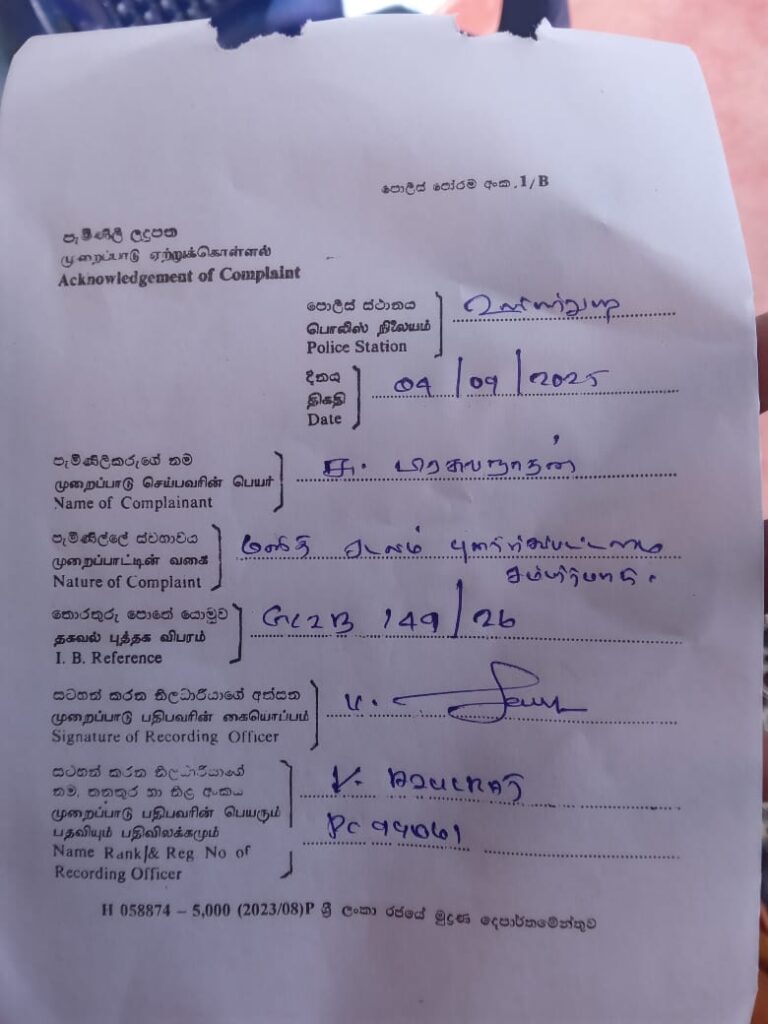 පොලිස් පෝරම අංක. 1/B
පැමිණිලි ලදුපත
முறைப்பாடு ஏற்றுக்கொள்ளல்
Acknowledgement of Complaint
පොලිස් ස්ථානය
பொலிஸ் நிலையம்
Police Station
දිනය
திகதி
Date
04/09/2025
පැමිණිලිකරුගේ නම
முறைப்பாடு செய்பவரின் பெயர்
Name of Complainant
පැමිණිල්ලේ ස්වභාවය
முறைப்பாட்டின் வகை
Nature of Complaint
தொරතුරු පොතේ යොමුව
தகவல் புத்தக விபரம்
I. B. Reference
149/26
සටහන් කරන නිලධාරියාගේ අත්සන
முறைப்பாடு பதிபவரின் கையொப்பம்
Signature of Recording Officer
සටහන් කරන නිලධාරියාගේ
නම, තනතුර හා නිල අංකය
முறைப்பாடு பதிபவரின் பெயரும்
பதவியும் பதிவிலக்கமும்
Name Rank & Reg No of
Recording Officer
PC 99061
H 058874 – 5,000 (2023/08)P ශ්‍රී ලංකා රජයේ මුද්‍රණ දෙපාර්තමේන්තුව